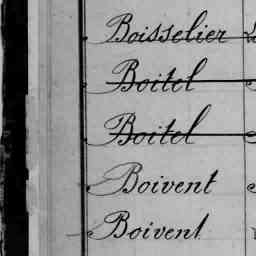 Boisselier
Boitel
Boitel
Boivent
Boivent